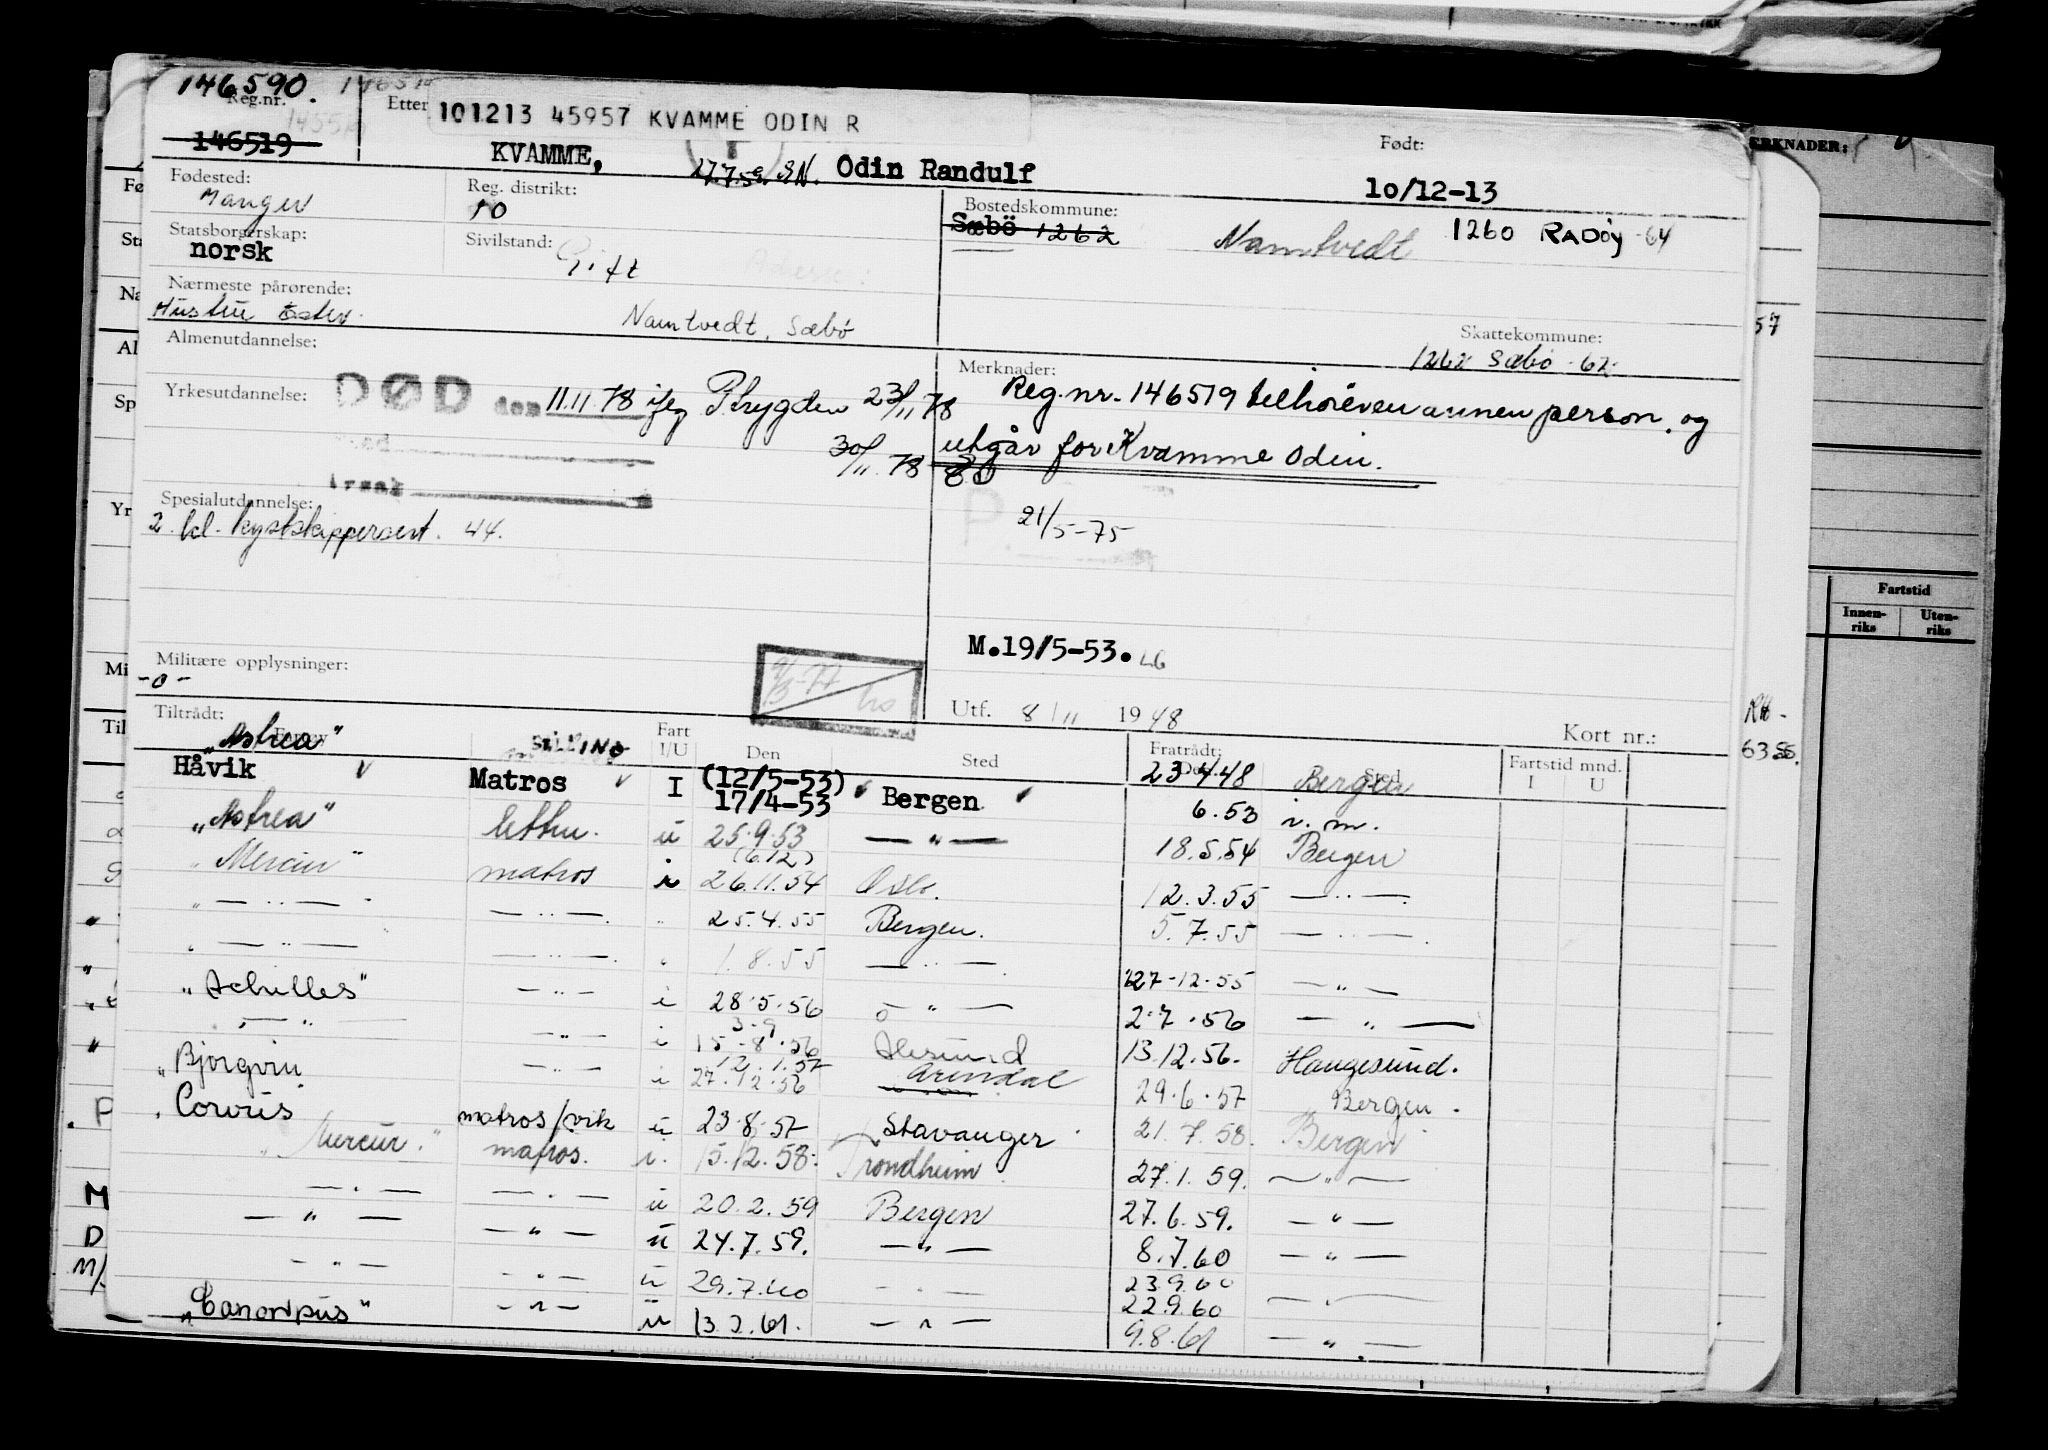 146590.
Reg.nr.
146519
Etter
101213 45957 KVAMME ODIN R
KVAMME, Odin Randulf
Født:
10/12-13
Fødested:
Manger
Reg. distrikt:
10
Bostedskommune:
Sæbö 1262
Namtvedt 1260 RADØY -64
Statsborgerskap:
norsk
Sivilstand:
Gift
Nærmeste pårørende:
Hustru Ester
Namtvedt, Sæbø
Skattekommune:
1262 Sæbø -62
Almenutdannelse:
Merknader:
Reg.nr. 146519 tilhører en annen person, og
utgår for Kvamme Odin.
Yrkesutdannelse:
DØD den 11.11.78 ifgl Strygden 23/11 78
30/11. 78
Årsak
21/5-75
Spesialutdannelse:
2. kl. kystskippersert. 44.
M.19/5-53.
Militære opplysninger:
-0-
Utf. 8/11 1948
Kort nr.:
Tiltrådt:
Fart
I/U
Den
Sted
Fratrådt:
Sted
Fartstid mnd.
I U
"Astrea" 23 4 48 Bergen
Håvik Matros I (12/5-53) 17/4-53 Bergen 6.53 i. m.
"Astrea" lettm. u 25.9.53 — " — 18.5.54 Bergen
"Mercur" matros i (6.12) 26.11.54 Oslo 12.3.55 — " —
— " — — " — " 25.4.55 Bergen. 5.7.55 — " —
— " — — " — " 1.8.55 — " — 27-12-55 — " —
"Achilles" — " — i 28.5.56 — " — 2.7.56 — " —
— " — — " — i 3.9 15-8.56 Ålesund 13.12.56. Haugesund.
"Bjørgvin — " — i 12.1.57 27.12.56 Arendal 29.6.57 Bergen.
Corvus matros/vik u 23.8.57 Stavanger 21.7.58. Bergen
"Mercur" matros. i. 15.12.58. Trondheim 27.1.59. — " —
— " — — " — u 20.2.59 Bergen 27.6.59. — " —
— " — — " — u 24.7.59. — " — 8.7.60 — " —
— " — — " — u 29.7.60 — " — 23.9.60 22.9.60 — " —
"Canopus" — " — u 13.2.61. — " — 9.8.61 — " —
ERKNADER:
57
Fartstid
Innen-
riks
Uten-
riks
Fø
Sta
Na
Al
Sp
Yr
Mi
Til
P
M
D
M/